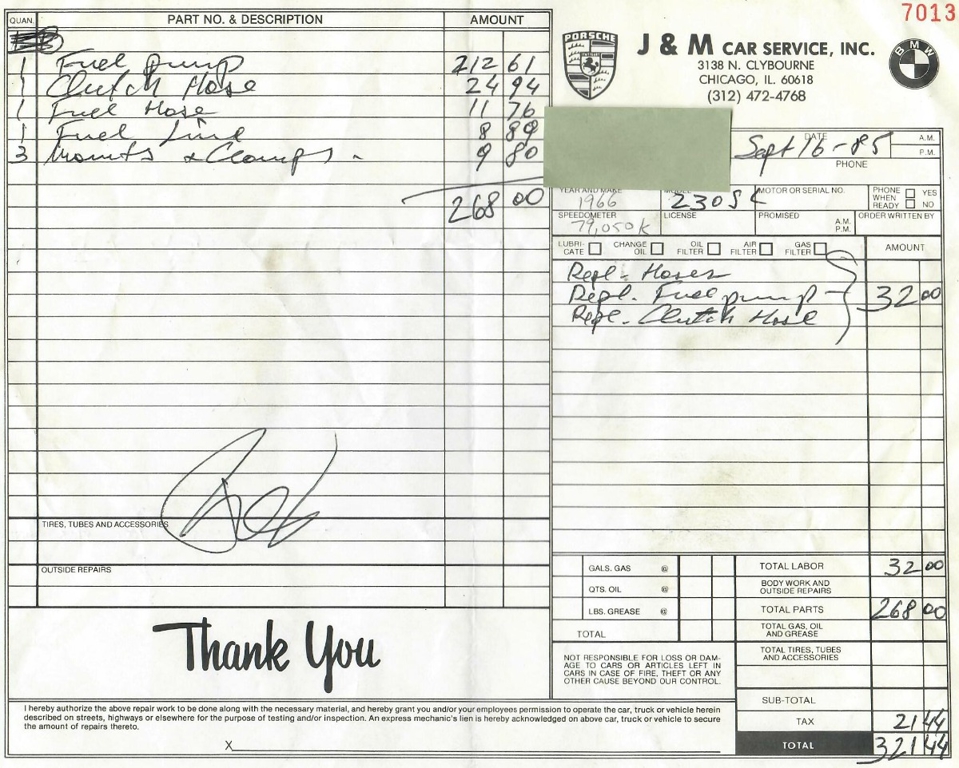 QUAN. PART NO. & DESCRIPTION AMOUNT
1 Fuel pump 212 61
1 Clutch Hose 24 94
1 Fuel Hose 11 76
1 Fuel Line 8 89
3 Mounts & Clamps 9 80
268 00
TIRES, TUBES AND ACCESSORIES
OUTSIDE REPAIRS
Thank You
7013
PORSCHE
J & M CAR SERVICE, INC.
3138 N. CLYBOURNE
CHICAGO, IL. 60618
(312) 472-4768
BMW
DATE
Sept 16-85
A.M.
P.M.
PHONE
YEAR AND MAKE 1966
MODEL 230SL
MOTOR OR SERIAL NO.
PHONE WHEN READY YES NO
SPEEDOMETER 79,050K
LICENSE
PROMISED A.M. P.M.
ORDER WRITTEN BY
LUBRICATE CHANGE OIL OIL FILTER AIR FILTER GAS FILTER AMOUNT
Repl. Hoses
Repl. Fuel pump 32 00
Repl. Clutch Hose
GALS. GAS @
QTS. OIL @
LBS. GREASE @
TOTAL
NOT RESPONSIBLE FOR LOSS OR DAM-
AGE TO CARS OR ARTICLES LEFT IN
CARS IN CASE OF FIRE, THEFT OR ANY
OTHER CAUSE BEYOND OUR CONTROL.
TOTAL LABOR 32 00
BODY WORK AND OUTSIDE REPAIRS
TOTAL PARTS 268 00
TOTAL GAS, OIL AND GREASE
TOTAL TIRES, TUBES AND ACCESSORIES
SUB-TOTAL
TAX 21 44
TOTAL 321 44
I hereby authorize the above repair work to be done along with the necessary material, and hereby grant you and/or your employees permission to operate the car, truck or vehicle herein
described on streets, highways or elsewhere for the purpose of testing and/or inspection. An express mechanic's lien is hereby acknowledged on above car, truck or vehicle to secure
the amount of repairs thereto.
X